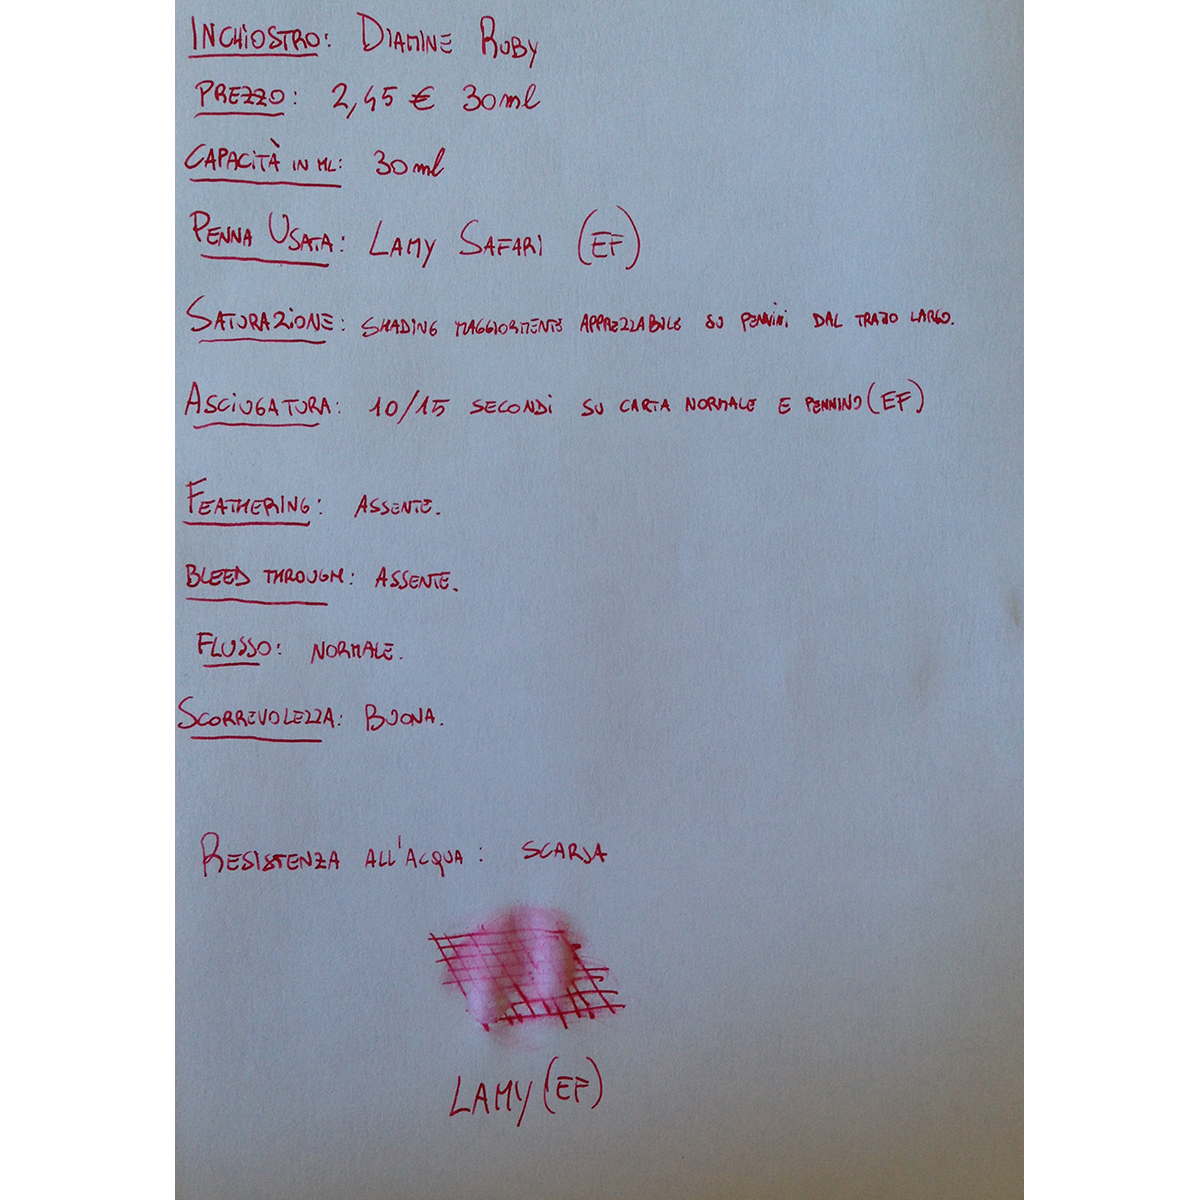 INCHIOSTRO: DIAMINE RUBY
PREZZO: 2,45 € 30ml
CAPACITÀ IN ML: 30ml
PENNA USATA: LAMY SAFARI (EF)
SATURAZIONE: SHADING MAGGIORMENTE APPREZZABILE SU PENNINI DAL TRATTO LARGO.
ASCIUGATURA: 10/15 SECONDI SU CARTA NORMALE E PENNINO (EF)
FEATHERING: ASSENTE.
BLEED THROUGH: ASSENTE.
FLUSSO: NORMALE.
SCORREVOLEZZA: BUONA.
RESISTENZA ALL'ACQUA: SCARSA
LAMY (EF)